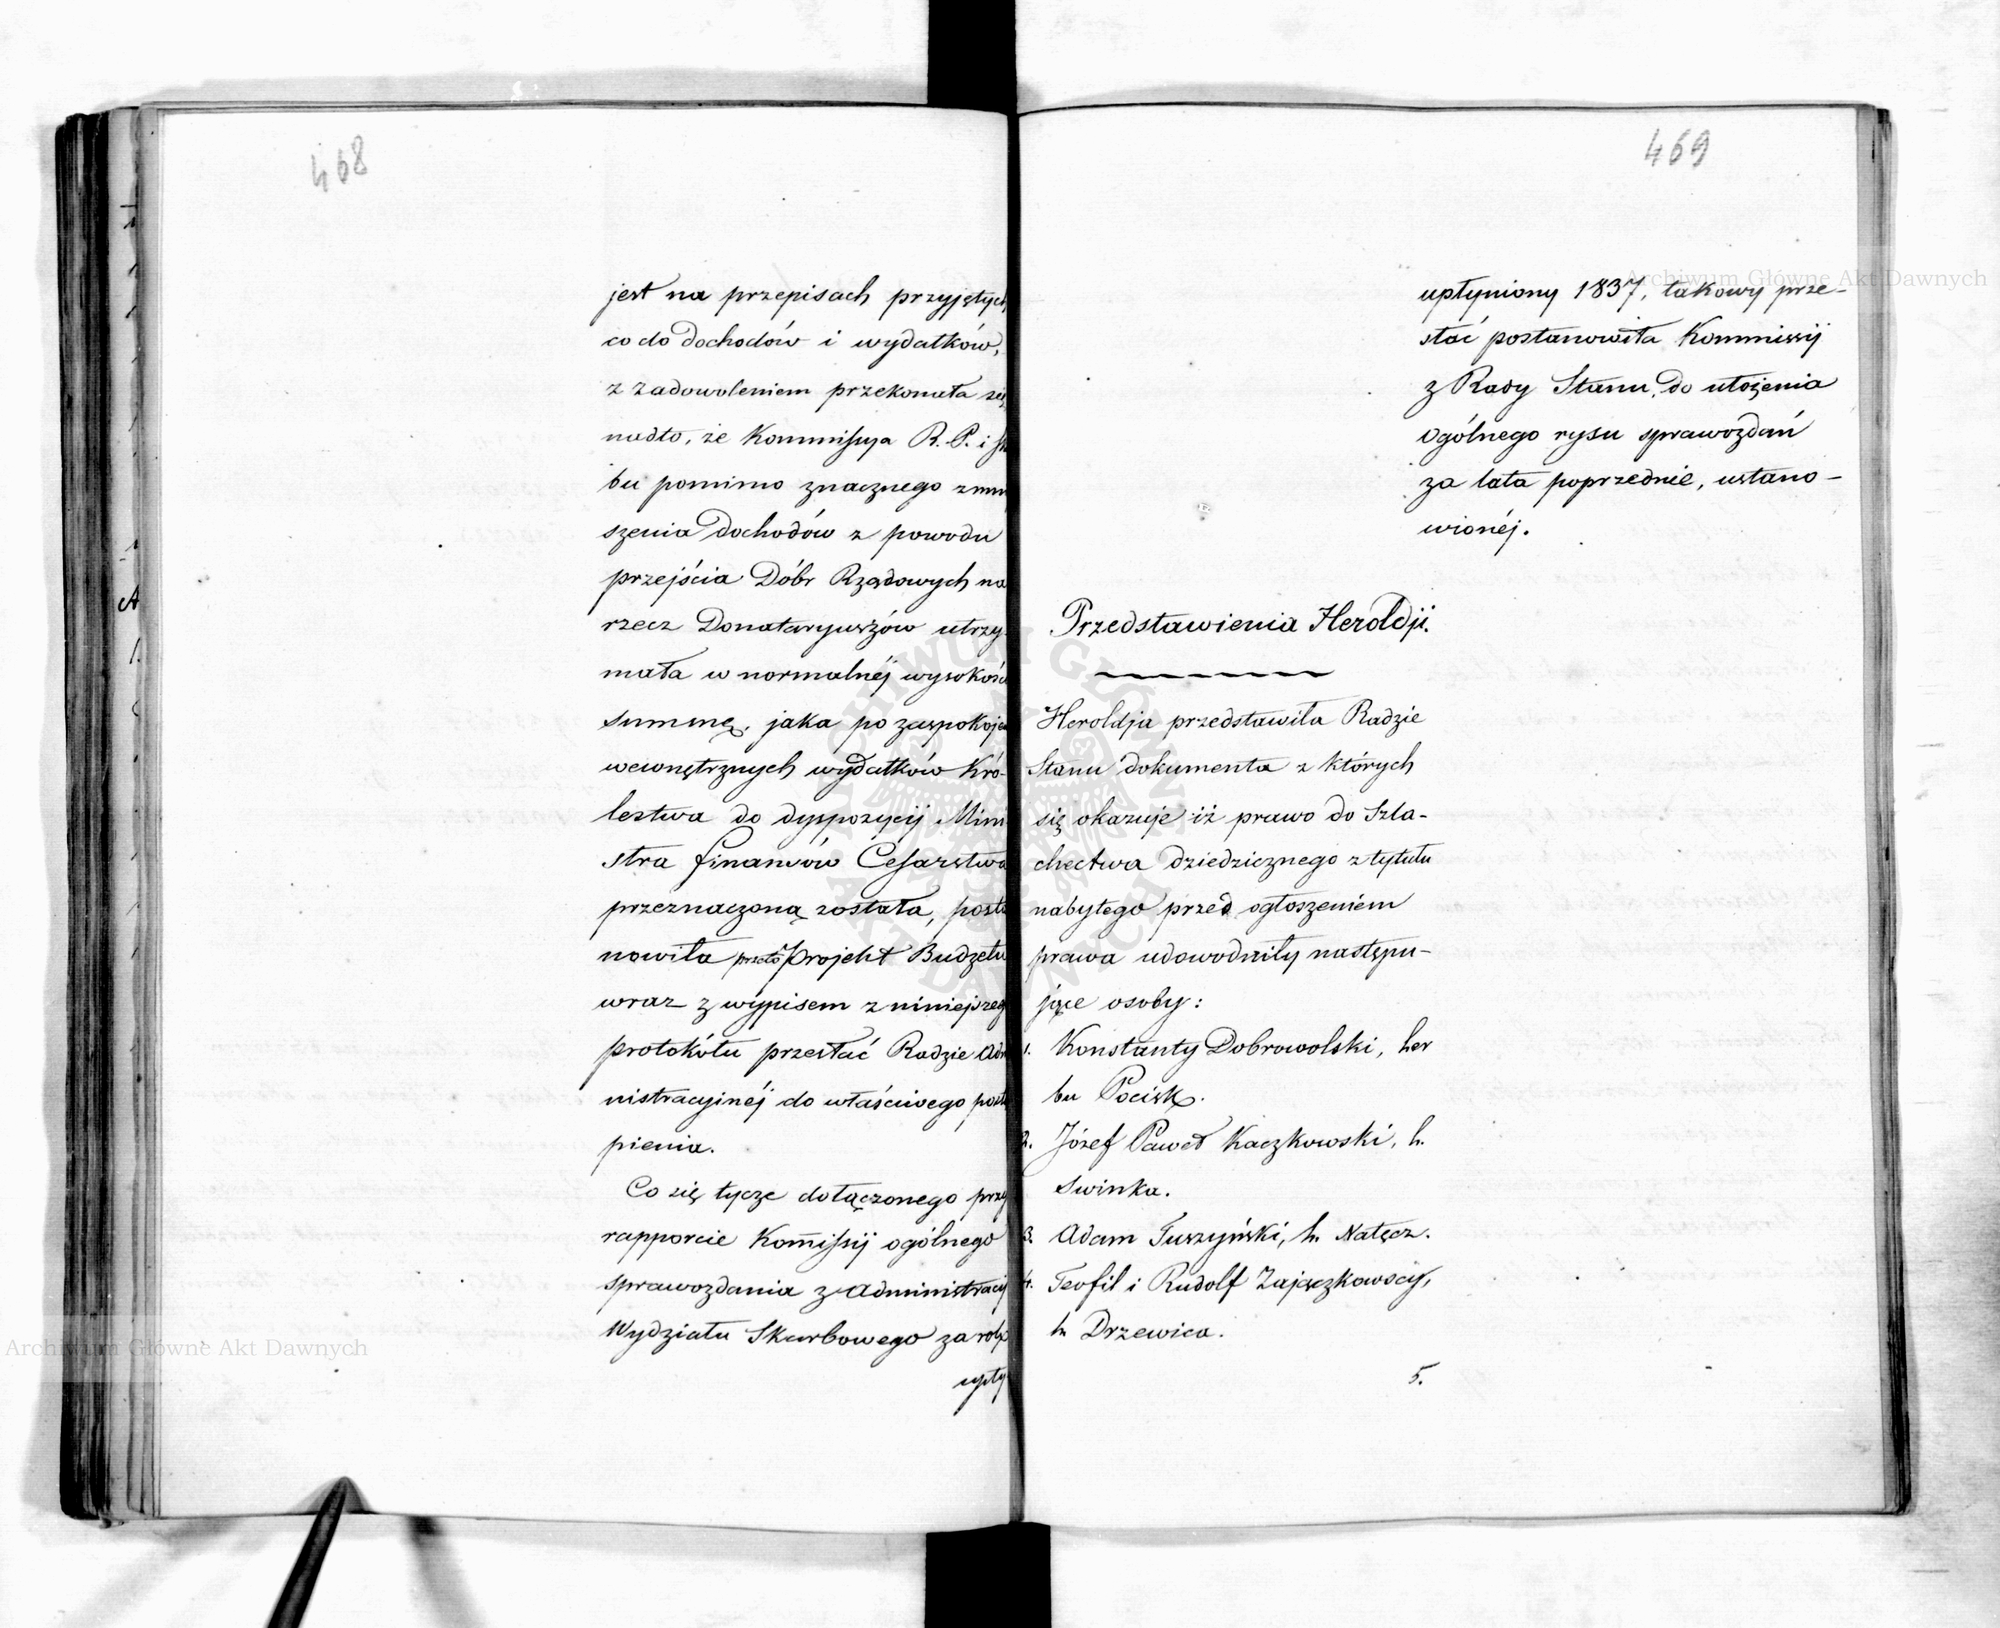 468
jest na przepisach przyjętych
co do dochodów i wydatków,
z zadowoleniem przekonała się
nadto, że Kommissya R. P. i Sk
bu pomimo znacznego zmn
szenia dochodów z powodu
przejścia Dóbr Rządowych na
rzecz Donataryuszów utrzy
mała w normalnéj wysokości
summę, jaka po zaspokoje
wewnętrznych wydatków Kró-
lestwa do dyspozycij Mini
stra finansów Cesarstwa
przeznaczoną została, posta
nowiła przeto Projekt Budżetu
wraz z wypisem z niniejszeg
protokółu przesłać Radzie Adm
nistracyjnéj do właściwego postą
pienia.
Co się tycze dołączonego przy
rapporcie Kommissij ogólnego
sprawozdania z Administracij
Wydziału Skarbowego za rok
upły
469
upłyniony 1837, takowy prze-
słać postanowiła Kommissij
z Rady Stanu, do ułożenia
ogólnego rysu sprawozdań
za lata poprzednie, ustano-
wionéj.
Przedstawienia Heroldji.
Heroldja przedstawiła Radzie
Stanu dokumenta z których
się okazuje iż prawo do Szla-
chectwa dziedzicznego z tytułu
nabytego przed ogłoszeniem
prawa udowodniły następu-
jące osoby:
1. Konstanty Dobrowolski, her
bu Pocisk.
2. Józef Paweł Kaczkowski, h.
Swinka.
3. Adam Tuszyński, h. Nałęcz.
4. Teofil i Rudolf Zajączkowscy,
h Drzewica.
5.
Archiwum Główne Akt Dawnych
Archiwum Główne Akt Dawnych
ARCHIWUM GŁÓWNE AKT DAWNYCH